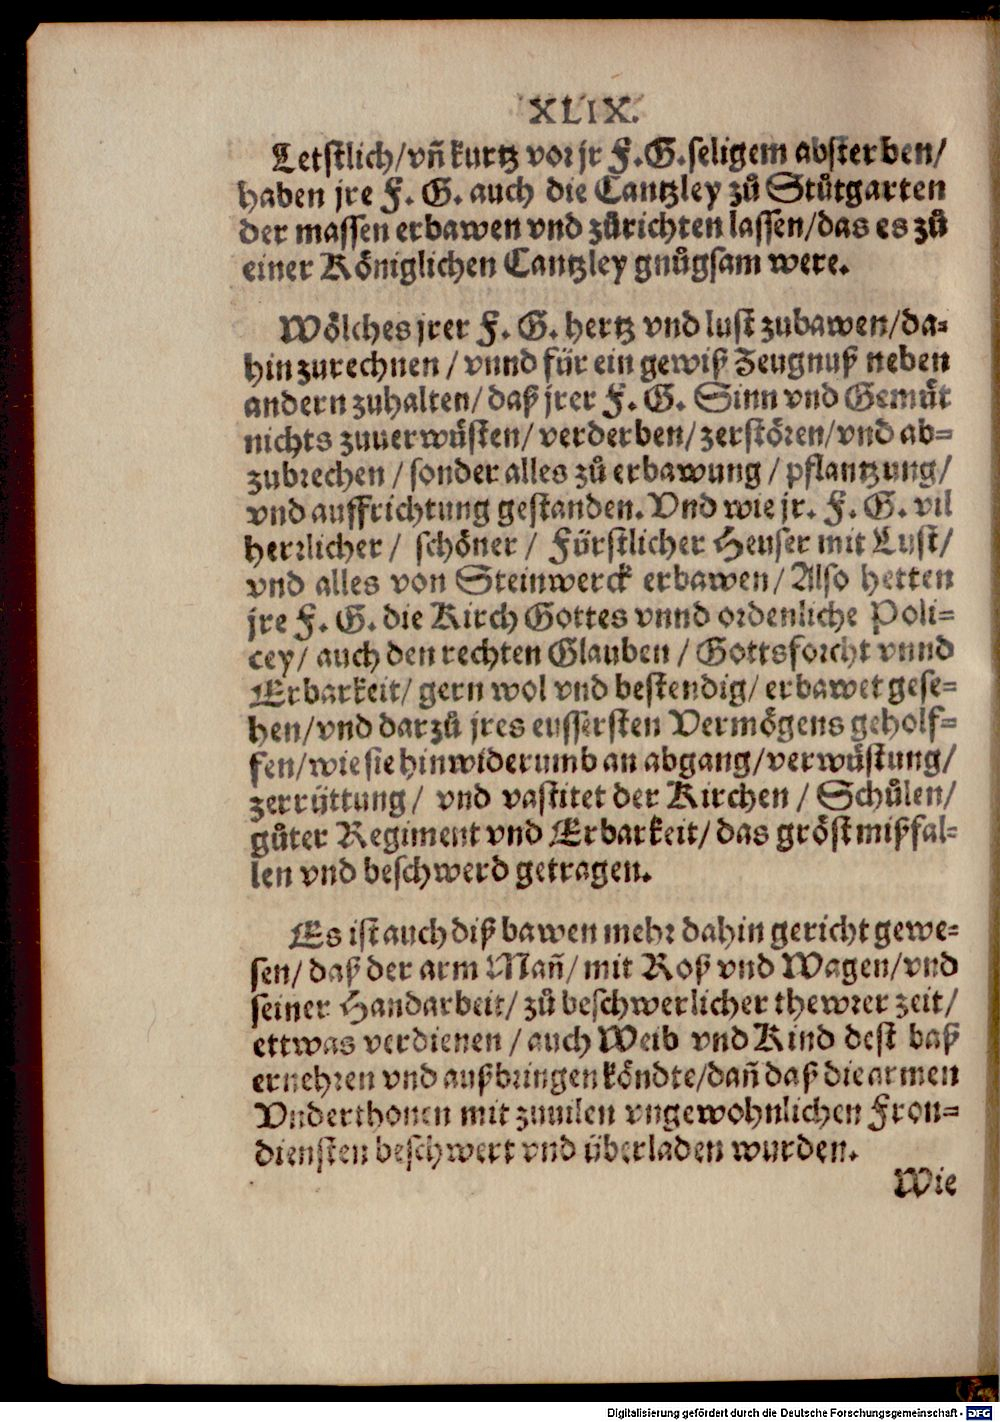 XLIX.
Letstlich/vñ kurtz vor jr F.G.seligem absterben/
haben jre F. G. auch die Cantzley zů Stůtgarten
der massen erbawen vnd zůrichten lassen/das es zů
einer Königlichen Cantzley gnůgsam were.
Wölches jrer F. G. hertz vnd lust zubawen/da-
hin zurechnen / vnnd für ein gewiß Zeugnuß neben
andern zuhalten/ daß jrer F. G. Sinn vnd Gemüt
nichts zuuerwüsten/ verderben/ zerstören/vnd ab-
zubrechen / sonder alles zů erbawung / pflantzung/
vnd auffrichtung gestanden. Vnd wie jr. F. G. vil
herrlicher / schöner / Fürstlicher Heuser mit Lust/
vnd alles von Steinwerck erbawen/ Also hetten
jre F. G. die Kirch Gottes vnnd ordenliche Poli-
cey/ auch den rechten Glauben / Gottsforcht vnnd
Erbarkeit/ gern wol vnd bestendig/ erbawet gese-
hen/vnd darzů jres eussersten Vermögens geholf-
fen/wie sie hinwiderumb an abgang/verwüstung/
zerrüttung/ vnd vastitet der Kirchen / Schůlen/
gůter Regiment vnd Erbarkeit/ das gröst mißfal-
len vnd beschwerd getragen.
Es ist auch diß bawen mehr dahin gericht gewe-
sen/ daß der arm Mañ/ mit Roß vnd Wagen/vnd
seiner Handarbeit/ zů beschwerlicher thewrer zeit/
ettwas verdienen / auch Weib vnd Kind dest baß
ernehren vnd außbringen köndte/dañ daß die armen
Vnderthonen mit zuuilen vngewohnlichen Fron-
diensten beschwert vnd überladen wurden.
Wie
Digitalisierung gefördert durch die Deutsche Forschungsgemeinschaft - DFG